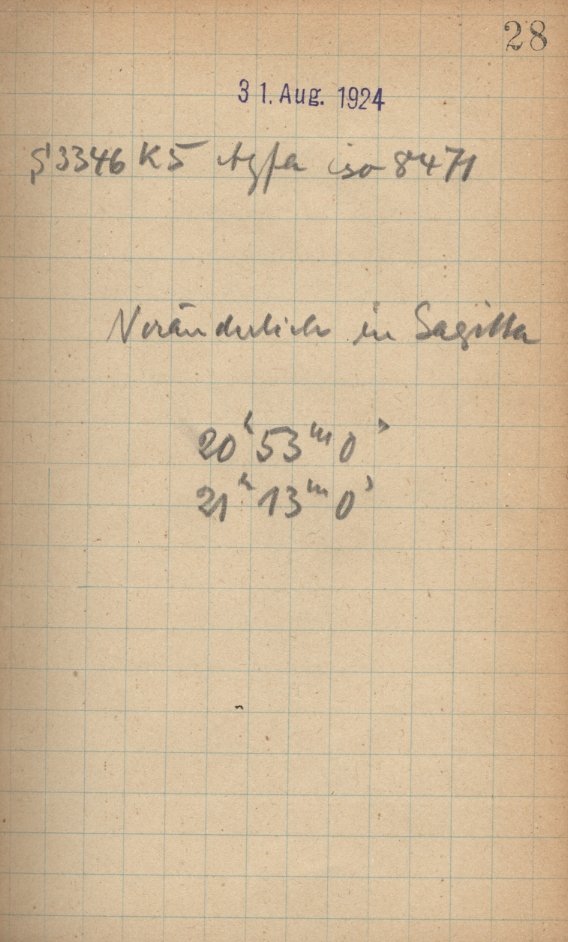 28
31. Aug. 1924
S 3346 K5 Agfa iso 8471
Veränderlich in Sagitta
20ʰ 53ᵐ 0ˢ
21ʰ 13ᵐ 0ˢ